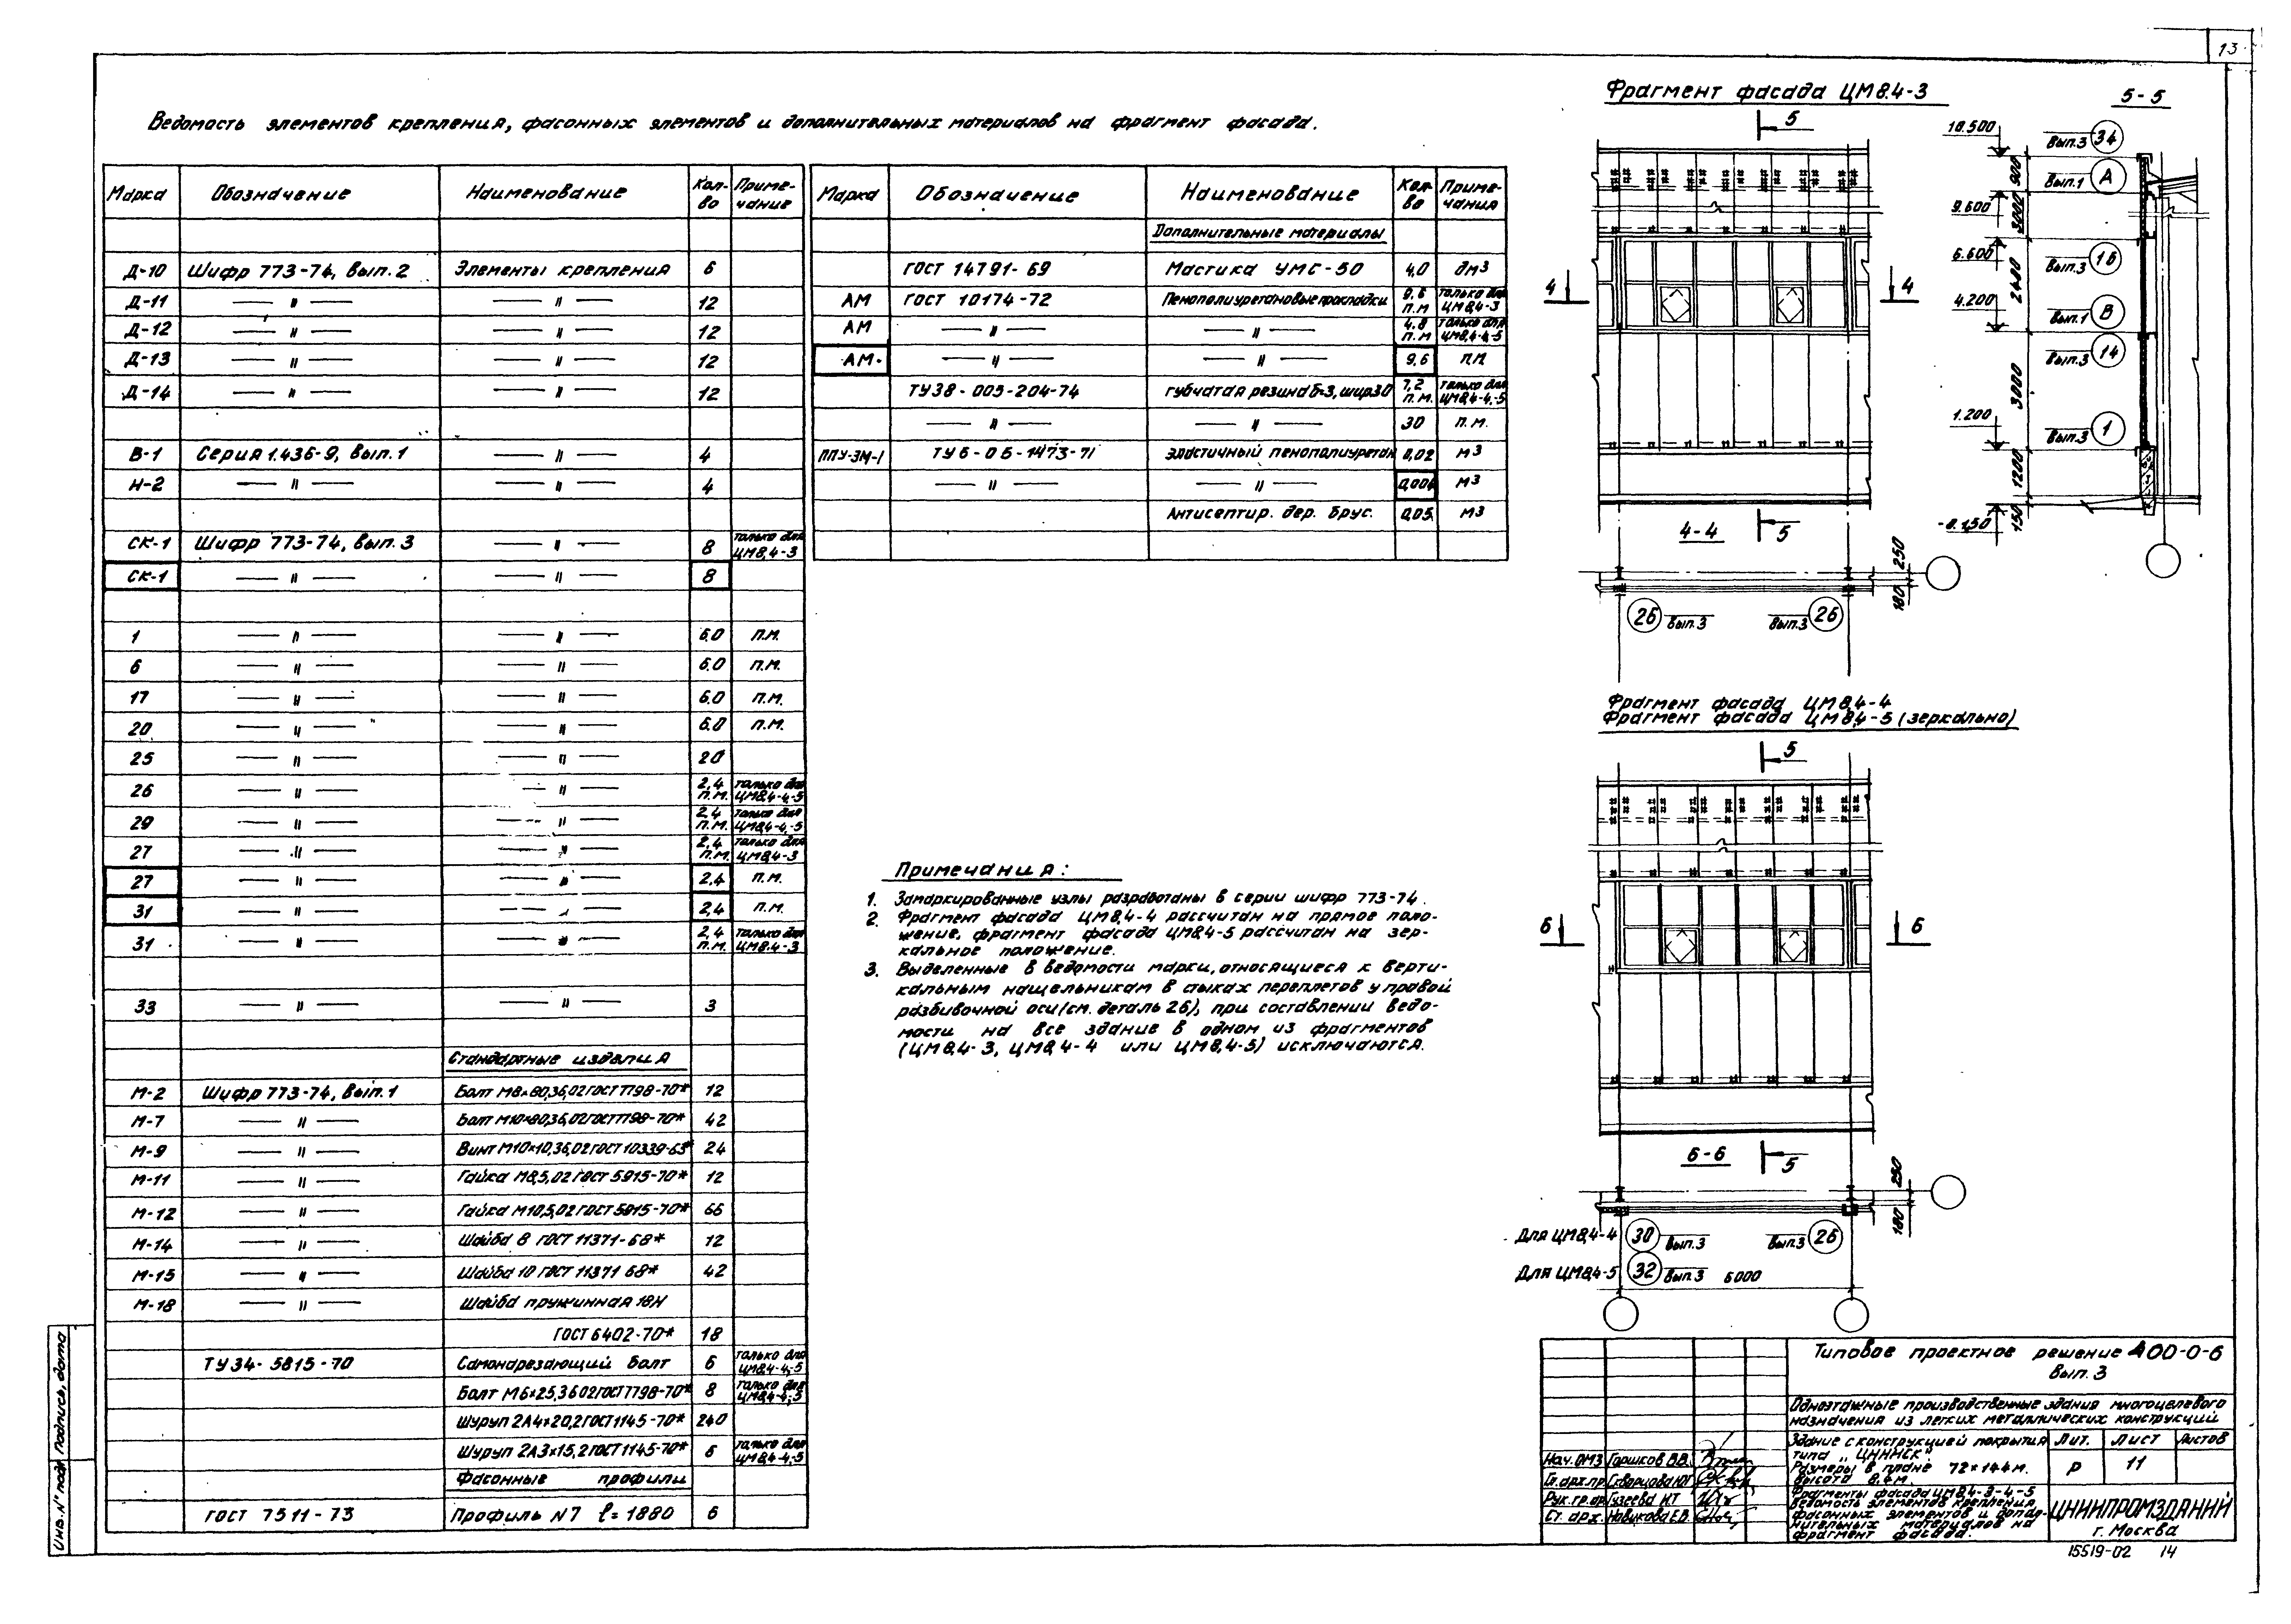 13
Ведомость элементов крепления, фасонных элементов и дополнительных материалов на фрагмент фасада.
Марка Обозначение Наименование Кол-во Примечание
Д-10 Шифр 773-74, вып. 2 Элементы крепления 6
Д-11 — " — — " — 12
Д-12 — " — — " — 12
Д-13 — " — — " — 12
Д-14 — " — — " — 12
В-1 Серия 1.436-9, вып. 1 — " — 4
Н-2 — " — — " — 4
СК-1 Шифр 773-74, вып. 3 — " — 8 только для ЦМ8,4-3
СК-1 — " — — " — 8
1 — " — — " — 6.0 п.м.
6 — " — — " — 6.0 п.м.
17 — " — — " — 6.0 п.м.
20 — " — — " — 6.0 п.м.
25 — " — — " — 20
26 — " — — " — 2,4 п.м. только для ЦМ8,4-4,-5
29 — " — — " — 2,4 п.м. только для ЦМ8,4-4,-5
27 — " — — " — 2,4 п.м. только для ЦМ8,4-3
27 — " — — " — 2,4 п.м.
31 — " — 2,4 п.м.
31 — " — — " — 2,4 п.м. только для ЦМ8.4-3
33 — " — — " — 3
Стандартные изделия
М-2 Шифр 773-74, вып. 1 Болт М8×80,36,02 ГОСТ 7798-70* 12
М-7 — " — Болт М10×80,36,02 ГОСТ 7798-70* 42
М-9 — " — Винт М10×10,36,02 ГОСТ 10339-63* 24
М-11 — " — Гайка М8,5,02 ГОСТ 5915-70* 12
М-12 — " — Гайка М10,5,02 ГОСТ 5915-70* 66
М-14 — " — Шайба 8 ГОСТ 11371-68* 12
М-15 — " — Шайба 10 ГОСТ 11371 68* 42
М-18 — " — Шайба пружинная 18Н
ГОСТ 6402-70* 18
ТУ 34-5815-70 Самонарезающий болт 6 только для ЦМ8,4-4,-5
Болт М6×25,36 02 ГОСТ 7798-70* 8 только для ЦМ8,4-4,-5
Шуруп 2А4×20,2 ГОСТ 1145-70* 240
Шуруп 2А3×15,2 ГОСТ 1145-70* 6 только для ЦМ8,4-4,-5
Фасонные профили
ГОСТ 7511-73 Профиль N7 ℓ=1880 6
Марка Обозначение Наименование Кол-во Примечания
Дополнительные материалы
ГОСТ 14791-69 Мастика УМС-50 4,0 дм3
АМ ГОСТ 10174-72 Пенополиуретановые прокладки 9.6 п.м только для ЦМ8,4-3
АМ — " — — " — 4.8 п.м только для ЦМ8,4-4,-5
АМ — " — — " — 9,6 п.м.
ТУ38-005-204-74 губчатая резина б=3, шир.30 7,2 п.м. только для ЦМ8,4-4,-5
— " — — " — 30 п.м.
ППУ-ЭМ-1 ТУ6-05-1473-71 Эластичный пенополиуретан 0,02 м3
— " — — " — 0,004 м3
Антисептир. дер. брус. 0,05 м3
Примечания:
1. Замаркированные узлы разработаны в серии шифр 773-74.
2. Фрагмент фасада ЦМ8,4-4 рассчитан на прямое поло-
жение, фрагмент фасада ЦМ8,4-5 рассчитан на зер-
кальное положение.
3. Выделенные в ведомости марки, относящиеся к верти-
кальным нащельникам в стыках переплетов у правой
разбивочной оси (см. деталь 26), при составлении ведо-
мости на все здание в одном из фрагментов
(ЦМ8,4-3, ЦМ8,4-4 или ЦМ8,4-5) исключаются.
Фрагмент фасада ЦМ8.4-3
5
4 4
4-4 5
250
180
26 вып.3 вып.3 26
5-5
10.500 вып.3 34
900
вып.1 А
9.600
3000
6.600 вып.3 16
2400
4.200 вып.1 В
вып.3 14
3000
1.200 вып.3 1
1200
-0.150 150
Фрагмент фасада ЦМ8,4-4
Фрагмент фасада ЦМ8,4-5 (зеркально)
5
6 6
6-6 5
250
180
Для ЦМ8,4-4 30 вып.3 вып.3 26
Для ЦМ8,4-5 32 вып.3 6000
Типовое проектное решение 400-0-6
вып. 3
Одноэтажные производственные здания многоцелевого
назначения из легких металлических конструкций
Здание с конструкцией покрытия
типа „ЦНИИСК"
Размеры в плане 72×144 м.
высота 8.4 м.
Лит. Лист Листов
Р 11
Фрагменты фасада ЦМ8,4-3-4-5
Ведомость элементов крепления,
фасонных элементов и допол-
нительных материалов на
фрагмент фасада.
ЦНИИПРОМЗДАНИЙ
г. Москва
Нач. ОМЗ Горшков В.В.
Гл.арх.пр. Скворцова
Рук.гр.ар. Гузеева Н.Т
Ст. арх. Новикова Е.В.
Инв. N° подл Подпись, дата
15519-02 14